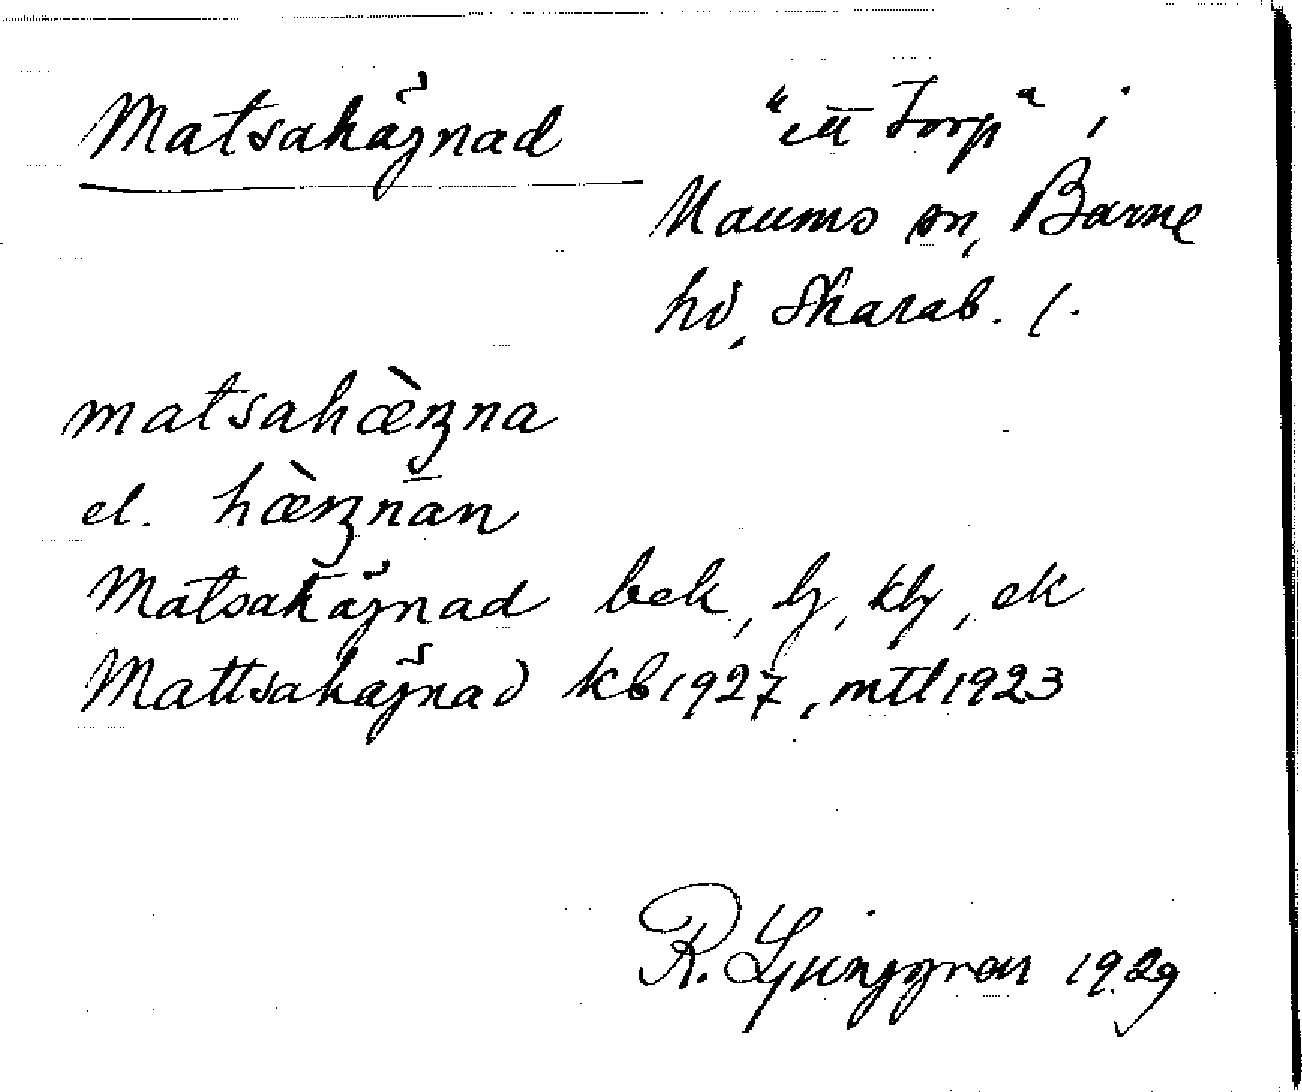 Matsahägnad "ett Torp" i
Naums sn, Barne
hd, Skarab. l.
matsahæ̀ŋna
el. hæ̀ŋnān
Matsahägnad bek, lj, klj, ek
Mattsahägnad kb 1927, mtl 1923
R. Ljunggren 1929